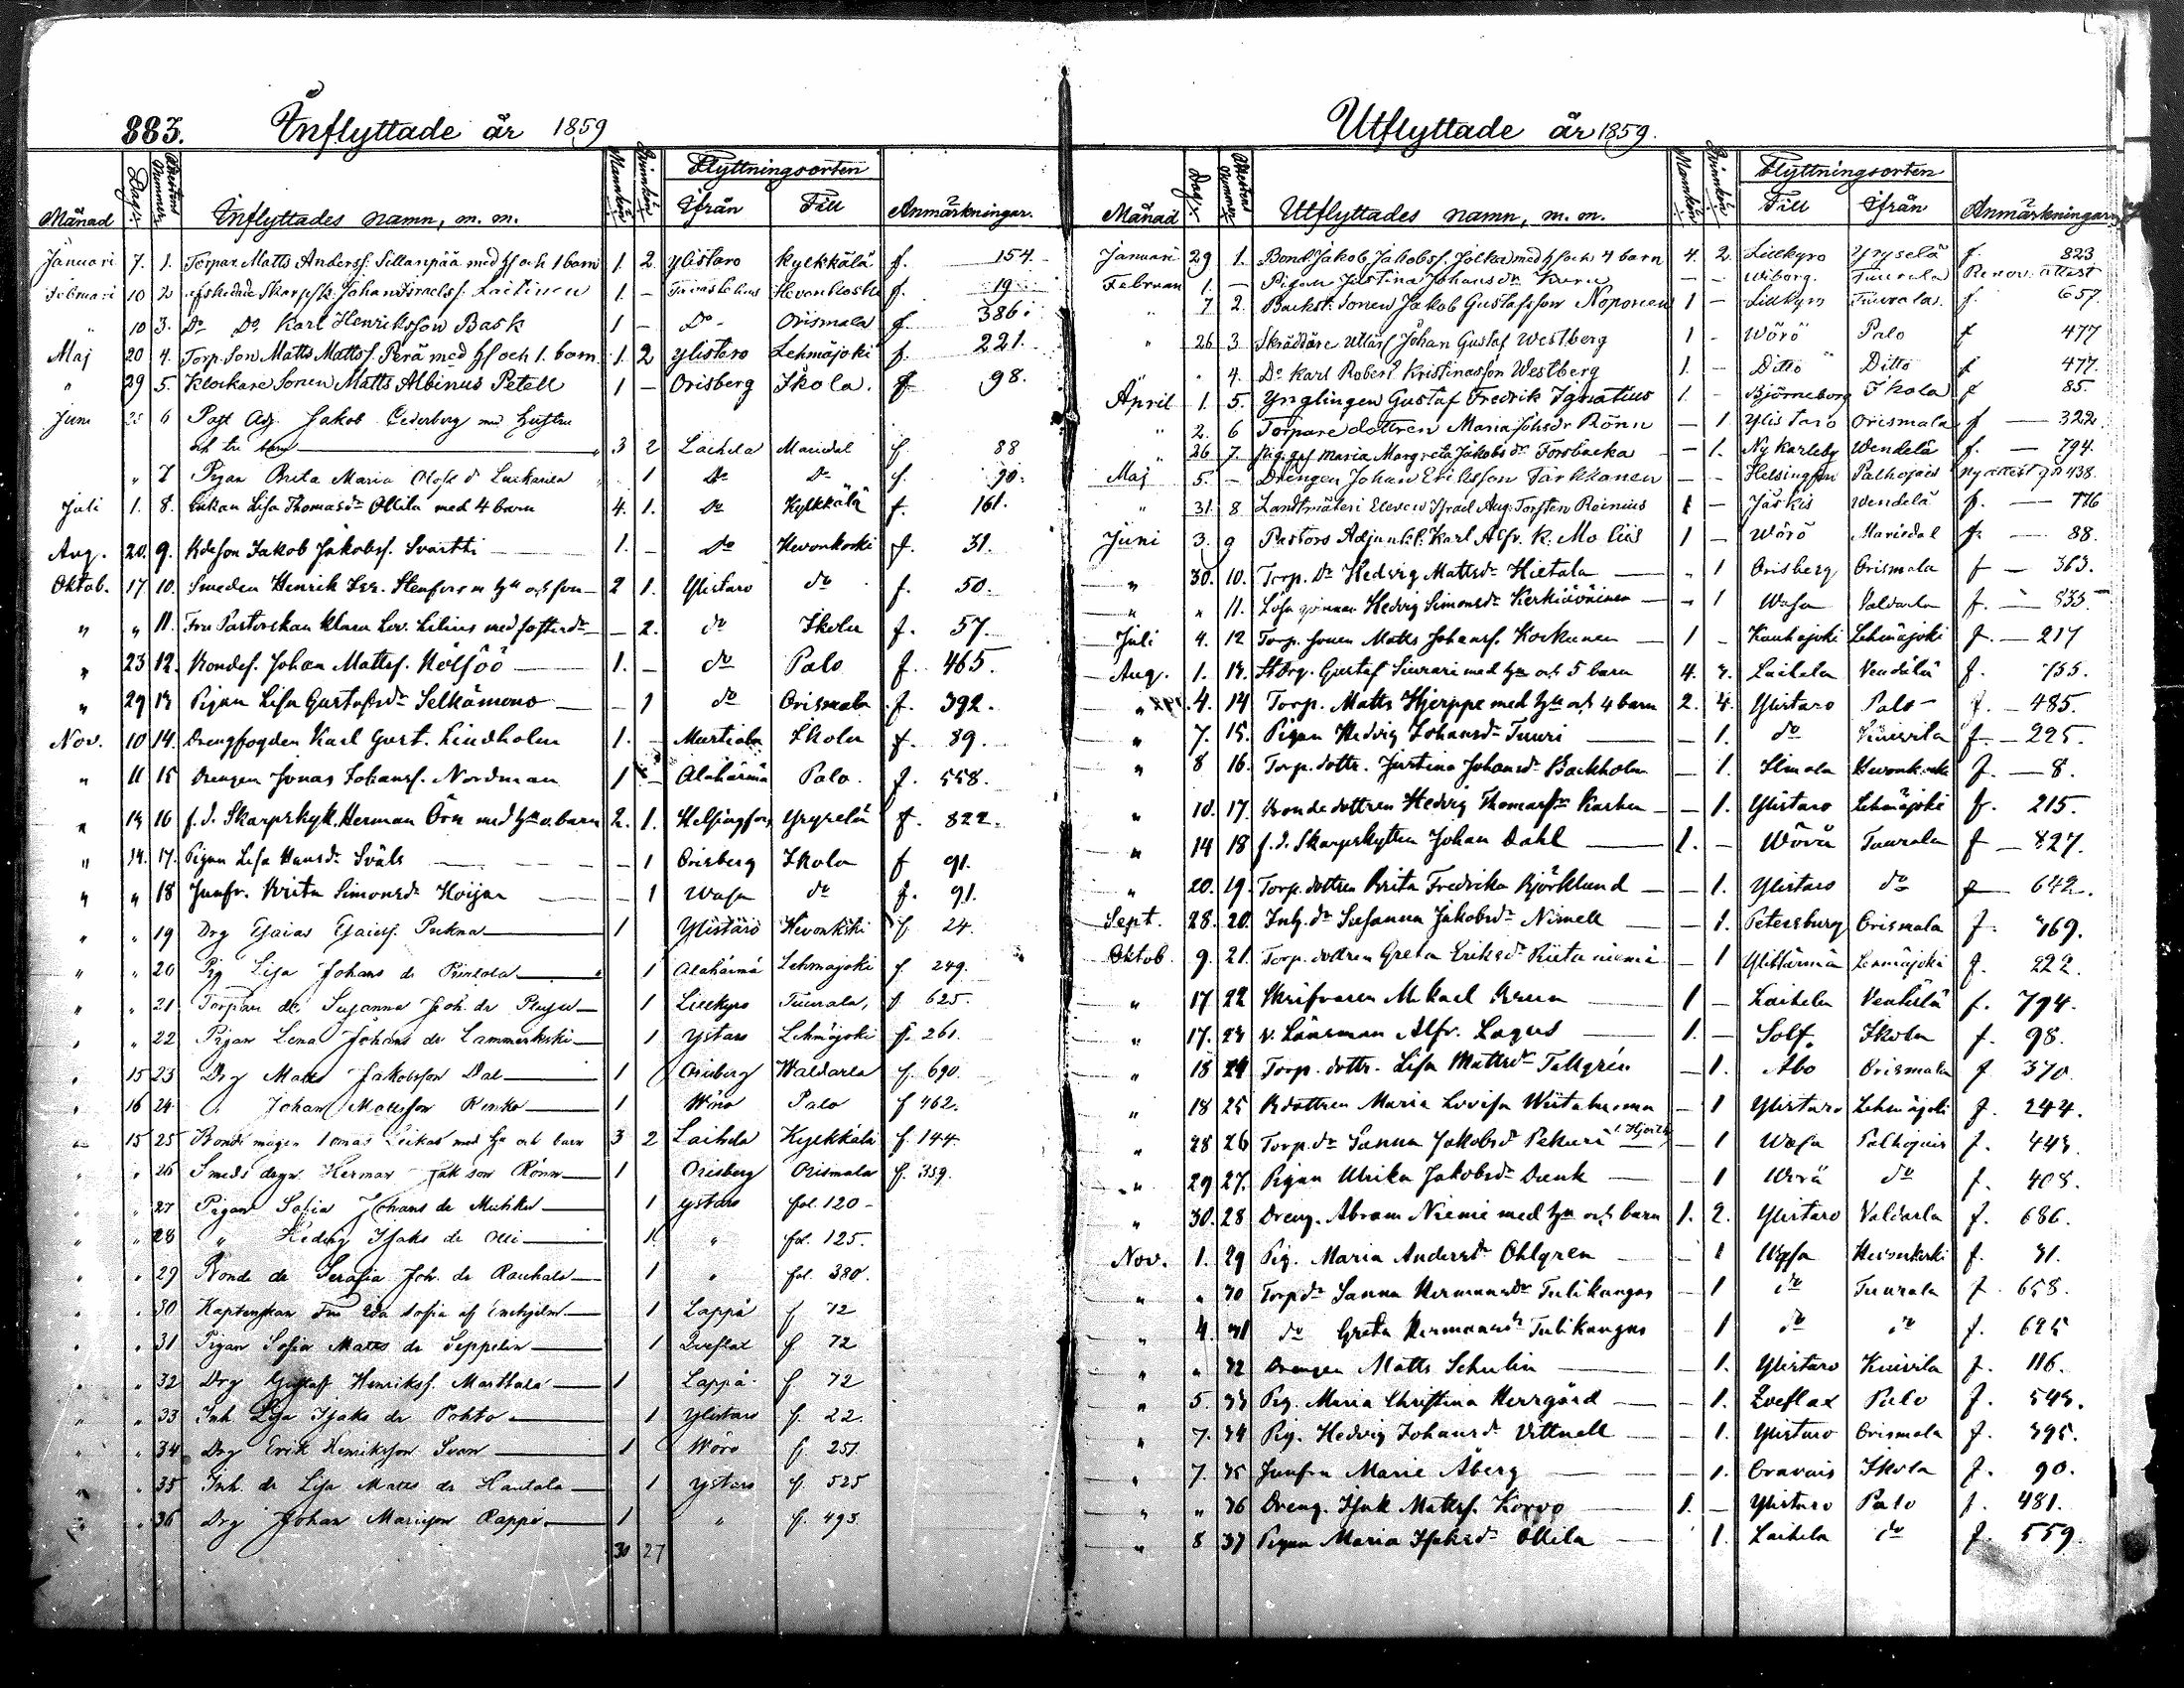 883. Inflyttade år 1859
Månad Dag. Attestens Nummer Inflyttades namn, m. m. Mankön Qvinkön Flyttningsorten Ifrån Till Anmärkningar.
Januari 7. 1. Torpar. Matts Anderss. Sillanpää med h och 1 barn 1. 2 Ylistaro Kylkkälä f. 154.
Februari 10 2 Johan Israelss. Laitinen 1. - Hevonkoski f. 19
" 10 3. Do Do Karl Henriksson Bask 1 - Do Orismala f. 386
Maj 20 4. Torp. Son Matts Mattss. Perä med h och 1. barn 1. 2 Ylistaro Lehmäjoki f. 221.
" 29 5. Klockare Sonen Matts Albinus Petell 1 - Orisberg Ikola. f 98.
Juni 6 Past Adj. Jakob Cederberg med hustru
och tre barn 3 2 Laihela Mariedal f. 88
" 7 Pigan Brita Maria Olofs d 1 Do Do f. 90.
Juli 1. 8. Enkan Lisa Thomasdr Ollila med 4 barn 4. 1. Do Kylkkälä f. 161.
Aug. 20. 9. Jakob Jakobss. Svartti 1. - Do Hevonkoski f. 31.
Oktob. 17 10. Smeden Henrik Stenfors m hu och son 2 1. Ylistaro do f. 50.
" " 11. Fru Pastorskan Klara Lov. Lilius med 2. do Ikola f. 57.
" 23 12. Bondes. Johan Mattss. Köljöö 1. - do Palo f. 465.
" 29 13 Pigan Lisa Gustafsdr Selkämono - 1 do Orismala f. 392.
Nov. 10 14. Drengfogden Karl Gust. Lindholm 1. - Murtiala Ikola f. 89.
" 11 15 Drengen Jonas Johanss. Nordman 1 - Alahärmä Palo. f. 558.
" 13 16 f. d. Skarpskyt. Herman Örn med hu o. barn 2. 1. Helsingfors Yryselä f. 822.
" 14. 17. Pigan Lisa Hansdr Sväls - 1 Orisberg Ikola f 91.
" " 18 Junfr. Brita Simonsdr Hoijar - 1 Wasa do f. 91.
" " 19 Drg Esaias Esaiss. Pukna 1 Ylistaro Hevonkoski f 24.
" " 20 Pig Lisa Johans dr 1 Alahärmä Lehmäjoki f. 249.
" " 21 Torpare dr Susanna Joh. dr 1 Lillkyro Tuurala, f. 625.
" " 22 Pigan Lena Johans dr Lammerkoski 1 Ystaro Lehmäjoki f. 261.
" 15 23 Drg Matts Jakobsson Dal 1 Orisberg Waldarla f. 690.
" 16 24 " Johan Mattsson Renko 1 Wörå Palo f 462.
" 15 25 Bonde mågen med hu och barn 3 2 Laihela Kylkkälä f. 144.
" " 26 Smeds drgn Herman Isak son Rönn 1 Orisberg Orismala f. 359.
" " 27 Pigan Sofia Johans dr 1 Ystaro fol. 120
" " 28 " Hedvig Isaks dr Olli 1 " fol. 125.
" " 29 Bonde dr Serafia Joh. dr Rauhala 1 " fol. 380.
" " 30 Kaptenskan Fru Eda Sofia af Enehjelm 1 Lappå f 72
" " 31 Pigan Sofia Matts dr Seppelin 1 Qveflax f. 72
" " 32 Drg Gustaf Henrikss. Marttala 1 Lappå f 72
" " 33 Inh Lisa Isaks dr Pohto 1 Ylistaro f. 22.
" " 34 Drg Erik Henriksson Svan 1 Wörå f. 251
" " 35 Inh. dr Lisa Matts dr Hautala 1 Ystaro f. 525
" " 36 Drg Johan Rappi 1 " f. 493
30 27
Utflyttade år 1859.
Månad Dag. Attestens Nummer Utflyttades namn, m. m. Mankön Qvinkön Flyttningsorten Till Ifrån Anmärkningar
Januari 29 1. Bond. Jakob Jakobss. Jolka med h och 4 barn 4. 2. Lillkyro Yryselä f. 823
Februari 1. - Pigan Justina Johansdr - - Wiborg. Tuurala Renov. attest
" 7 2. Backst. Sonen Jakob Gustafsson Noponen 1 - Lillkyro Tuurala. f. 657.
" 26 3 Skräddare Johan Gustaf Westberg 1 - Wörå Palo f 477
" " 4. Do Karl Robert Kristinasson Westberg 1. - Ditto Ditto f 477.
April 1. 5. Ynglingen Gustaf Fredrik Ignatius 1. - Björneborg Ikola f 85.
" 2. 6 Torpare dottren Maria Johsdr Rönn - 1 Ylistaro Orismala f 322.
" 26 7. Maria Margreta Jakobs dr Forsbacka - 1. Ny Karleby Wendelä f. 794.
Maj 5. - Drengen Johan Eriksson Tarkkanen - - Helsingfors ny attest 438.
" 31. 8 Landtmäteri Eleven Israel Aug. Torsten Reinius 1 - Jäskis Wendelä f. 776
Juni 3. 9 Pastors Adjunkt. Karl Alfr. K. Molüs 1 - Wörå Mariedal f. 88.
" 30. 10. Torp. Dr Hedvig Mattsdr Hietala " 1 Orisberg Orismala f 363.
" " 11. Hedvig Simonsdr " 1 Wasa Valdarla f. 833
Juli 4. 12 Torp. Sonen Matts Johanss. 1 - Kauhajoki Lehmäjoki f. 217
Aug. 1. 13. Gustaf Siurari med hu och 5 barn 4. 3. Laihela Vendälä f. 755.
" 4. 14 Torp. Matts Hjerppe med hu och 4 barn 2. 4. Ylistaro Palo f. 485.
" 7. 15. Pigan Hedvig Johansdr Tuuri - 1. do f. 225.
" 8 16. Torp. dottr. Justina Johansdr Backholm - 1. Ilmola Hevonkoski f. 8.
" 10. 17. Bonde dottren Hedvig Thomasdr - 1. Ylistaro Lehmäjoki f. 215.
" 14 18 f. d. Skarpskytten Johan Dahl 1. - Wörå Tuurala f 827.
" 20. 19. Torp. dottren Brita Fredrika Björklund - 1. Ylistaro do f 642.
Sept. 28. 20. Inh. dr Susanna Jakobsdr Nimell - 1. Petersburg Orismala f. 369.
Oktob. 9. 21. Torp. dottren Greta Eriksdr Riitaniemi - 1 Ylihärmä Lehmäjoki f. 222.
" 17 22 Skrifvaren Mikael Grun 1 - Laihela Vendelä f. 794.
" 17. 23 v. Länsman Alfr. Lagus 1. - Solf. Ikola f. 98.
" 18 24 Torp. dottr. Lisa Mattsdr Tallgrén - 1. Åbo Orismala f 370
" 18 25 Bdottren Maria Lovisa - 1 Ylistaro Lehmäjoki f. 244.
" 28 26 Torp. dr Sanna Jakobsd Pekuri - 1 Wasa f. 443.
" 29 27. Pigan Ulrika Jakobsdr - 1 Wörå do f. 408.
" 30. 28 Dreng. Abram Niemi med hu och barn 1. 2. Ylistaro Valdarla f. 686.
Nov. 1. 29 Pig. Maria Andersdr Ohlgren - 1 Wasa Hevonkoski f. 31.
" " 30 Torp dr Sanna Hermansdr Tulikangas - 1 do Tuurala f. 658.
" 4. 31 do Greta Hermansdr Tulikangas - 1 do do f. 625
" " 32 Drengen Matts Schulin - 1. Ylistaro Kuivila f. 116.
" 5. 33 Pig. Maria Christina Herrgård - 1. Qveflax Palo f. 543.
" 7. 34 Pig. Hedvig Johansdr - 1. Ylistaro Orismala f. 395.
" 7. 35 Junfru Marie Åberg - 1. Oravais Ikola f. 90.
" " 36 Dreng. Isak Mattss. Korvo 1. - Ylistaro Palo f. 481.
" 8 37 Pigan Maria Isaksdr Ollila 1. Laihela do f. 559.